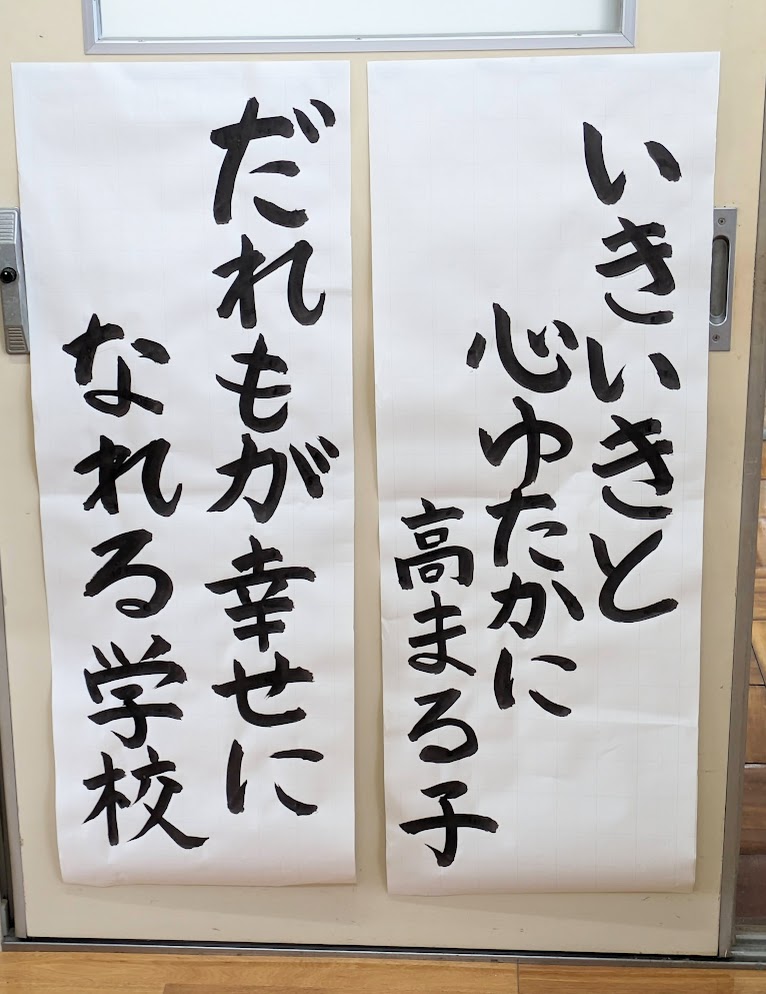 いきいきと
心ゆたかに
高まる子
だれもが幸せに
なれる学校